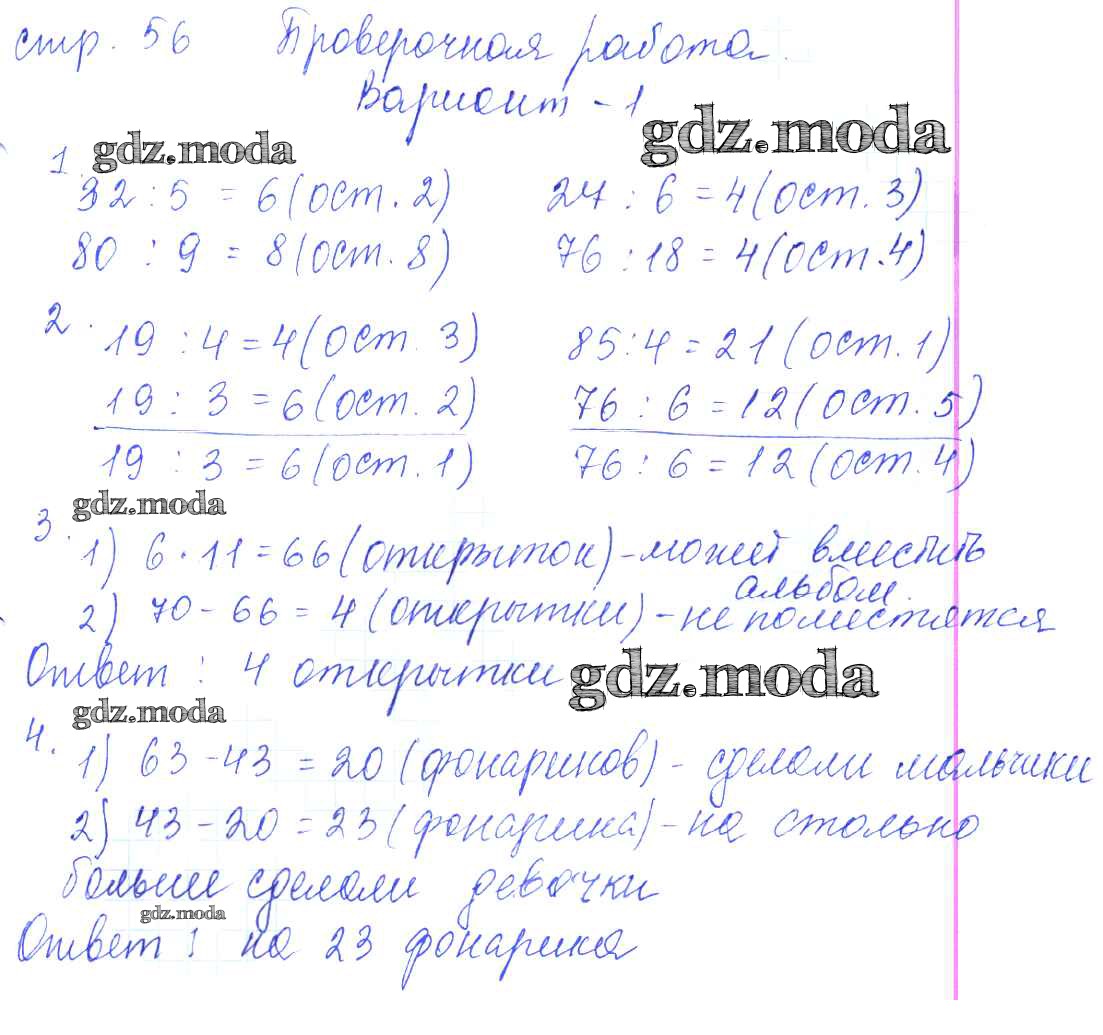 стр. 56 Проверочная работа.
Вариант - 1
gdz.moda gdz.moda
1. 32 : 5 = 6 (ост. 2) 27 : 6 = 4 (ост. 3)
80 : 9 = 8 (ост. 8) 76 : 18 = 4 (ост. 4)
2. 19 : 4 = 4 (ост. 3) 85 : 4 = 21 (ост. 1)
19 : 3 = 6 (ост. 2) 76 : 6 = 12 (ост. 5)
19 : 3 = 6 (ост. 1) 76 : 6 = 12 (ост. 4)
gdz.moda
3. 1) 6 · 11 = 66 (открыток) - может вместить
альбом.
2) 70 - 66 = 4 (открытки) - не поместятся
Ответ : 4 открытки gdz.moda
gdz.moda
4. 1) 63 - 43 = 20 (фонариков) - сделали мальчики
2) 43 - 20 = 23 (фонарика) - на столько
больше сделали девочки
gdz.moda
Ответ : на 23 фонарика